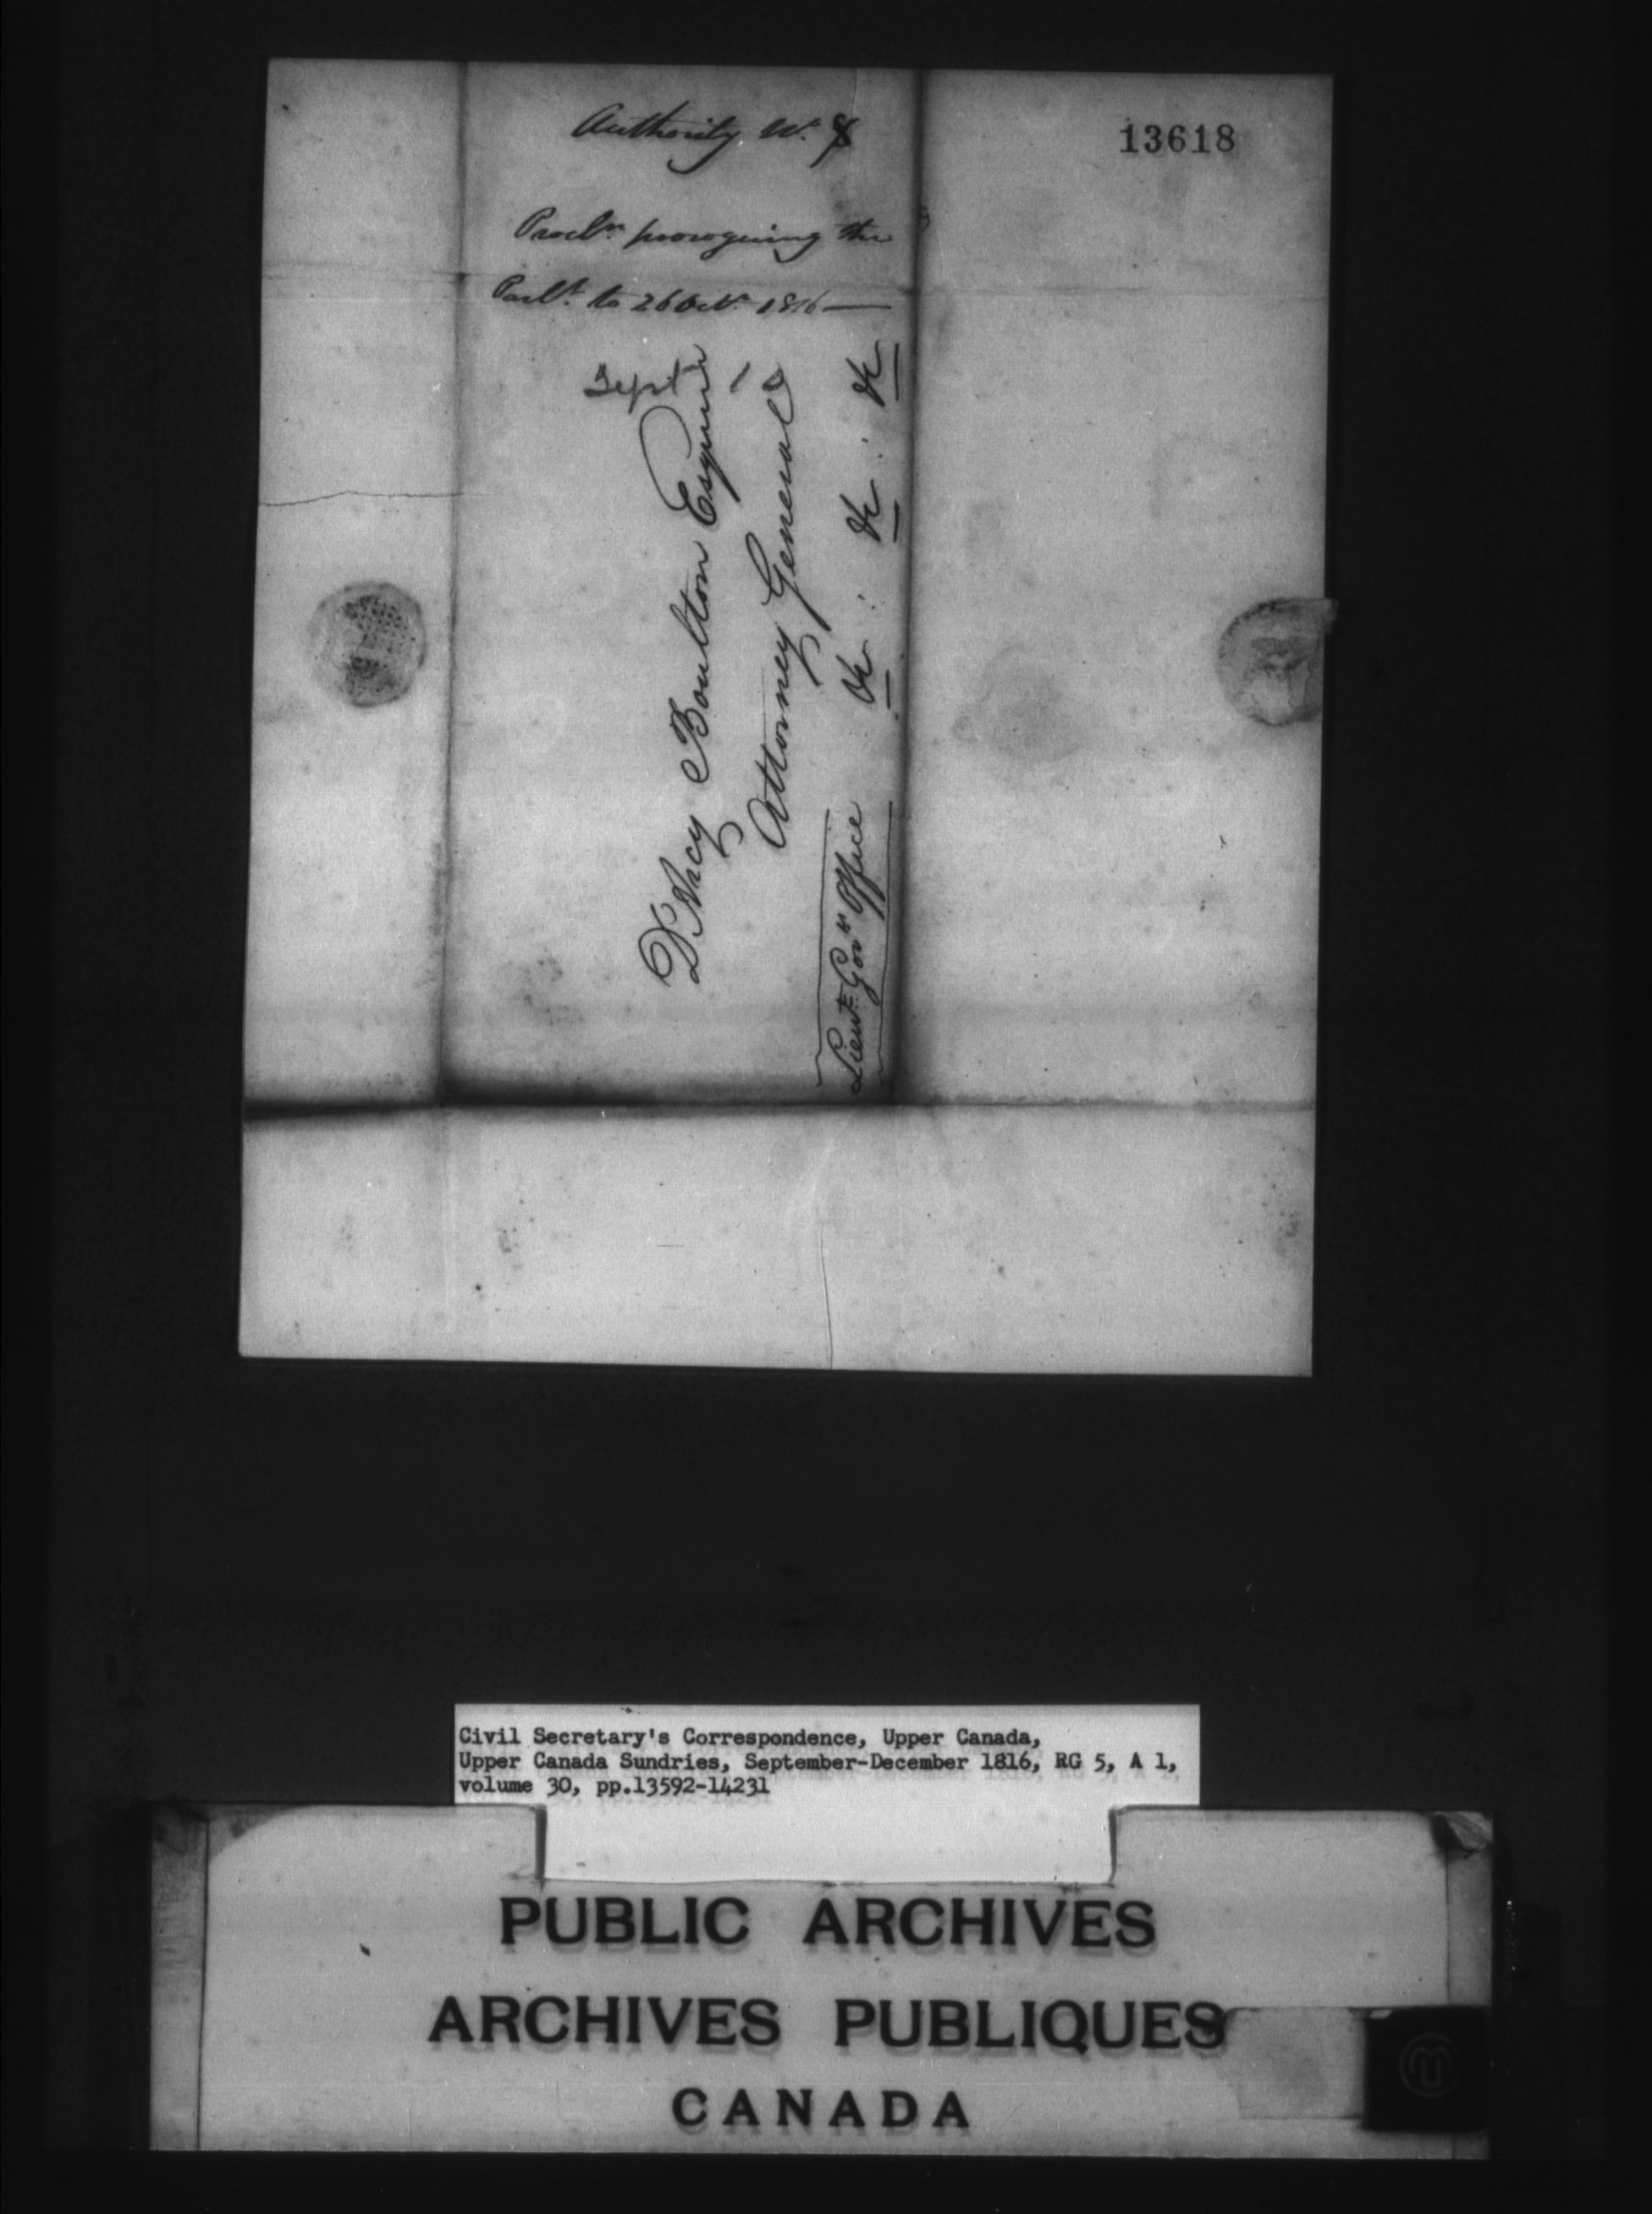 13618
Authority No.
Procln. proroguing the
Parlt. to 26 Octr. 1816 —
Sept 10
D'Arcy Boulton Esquire
Attorney General
&c : &c : &c
Lieut. Govrs. Office
Civil Secretary's Correspondence, Upper Canada,
Upper Canada Sundries, September-December 1816, RG 5, A 1,
volume 30, pp.13592-14231
PUBLIC ARCHIVES
ARCHIVES PUBLIQUES
CANADA